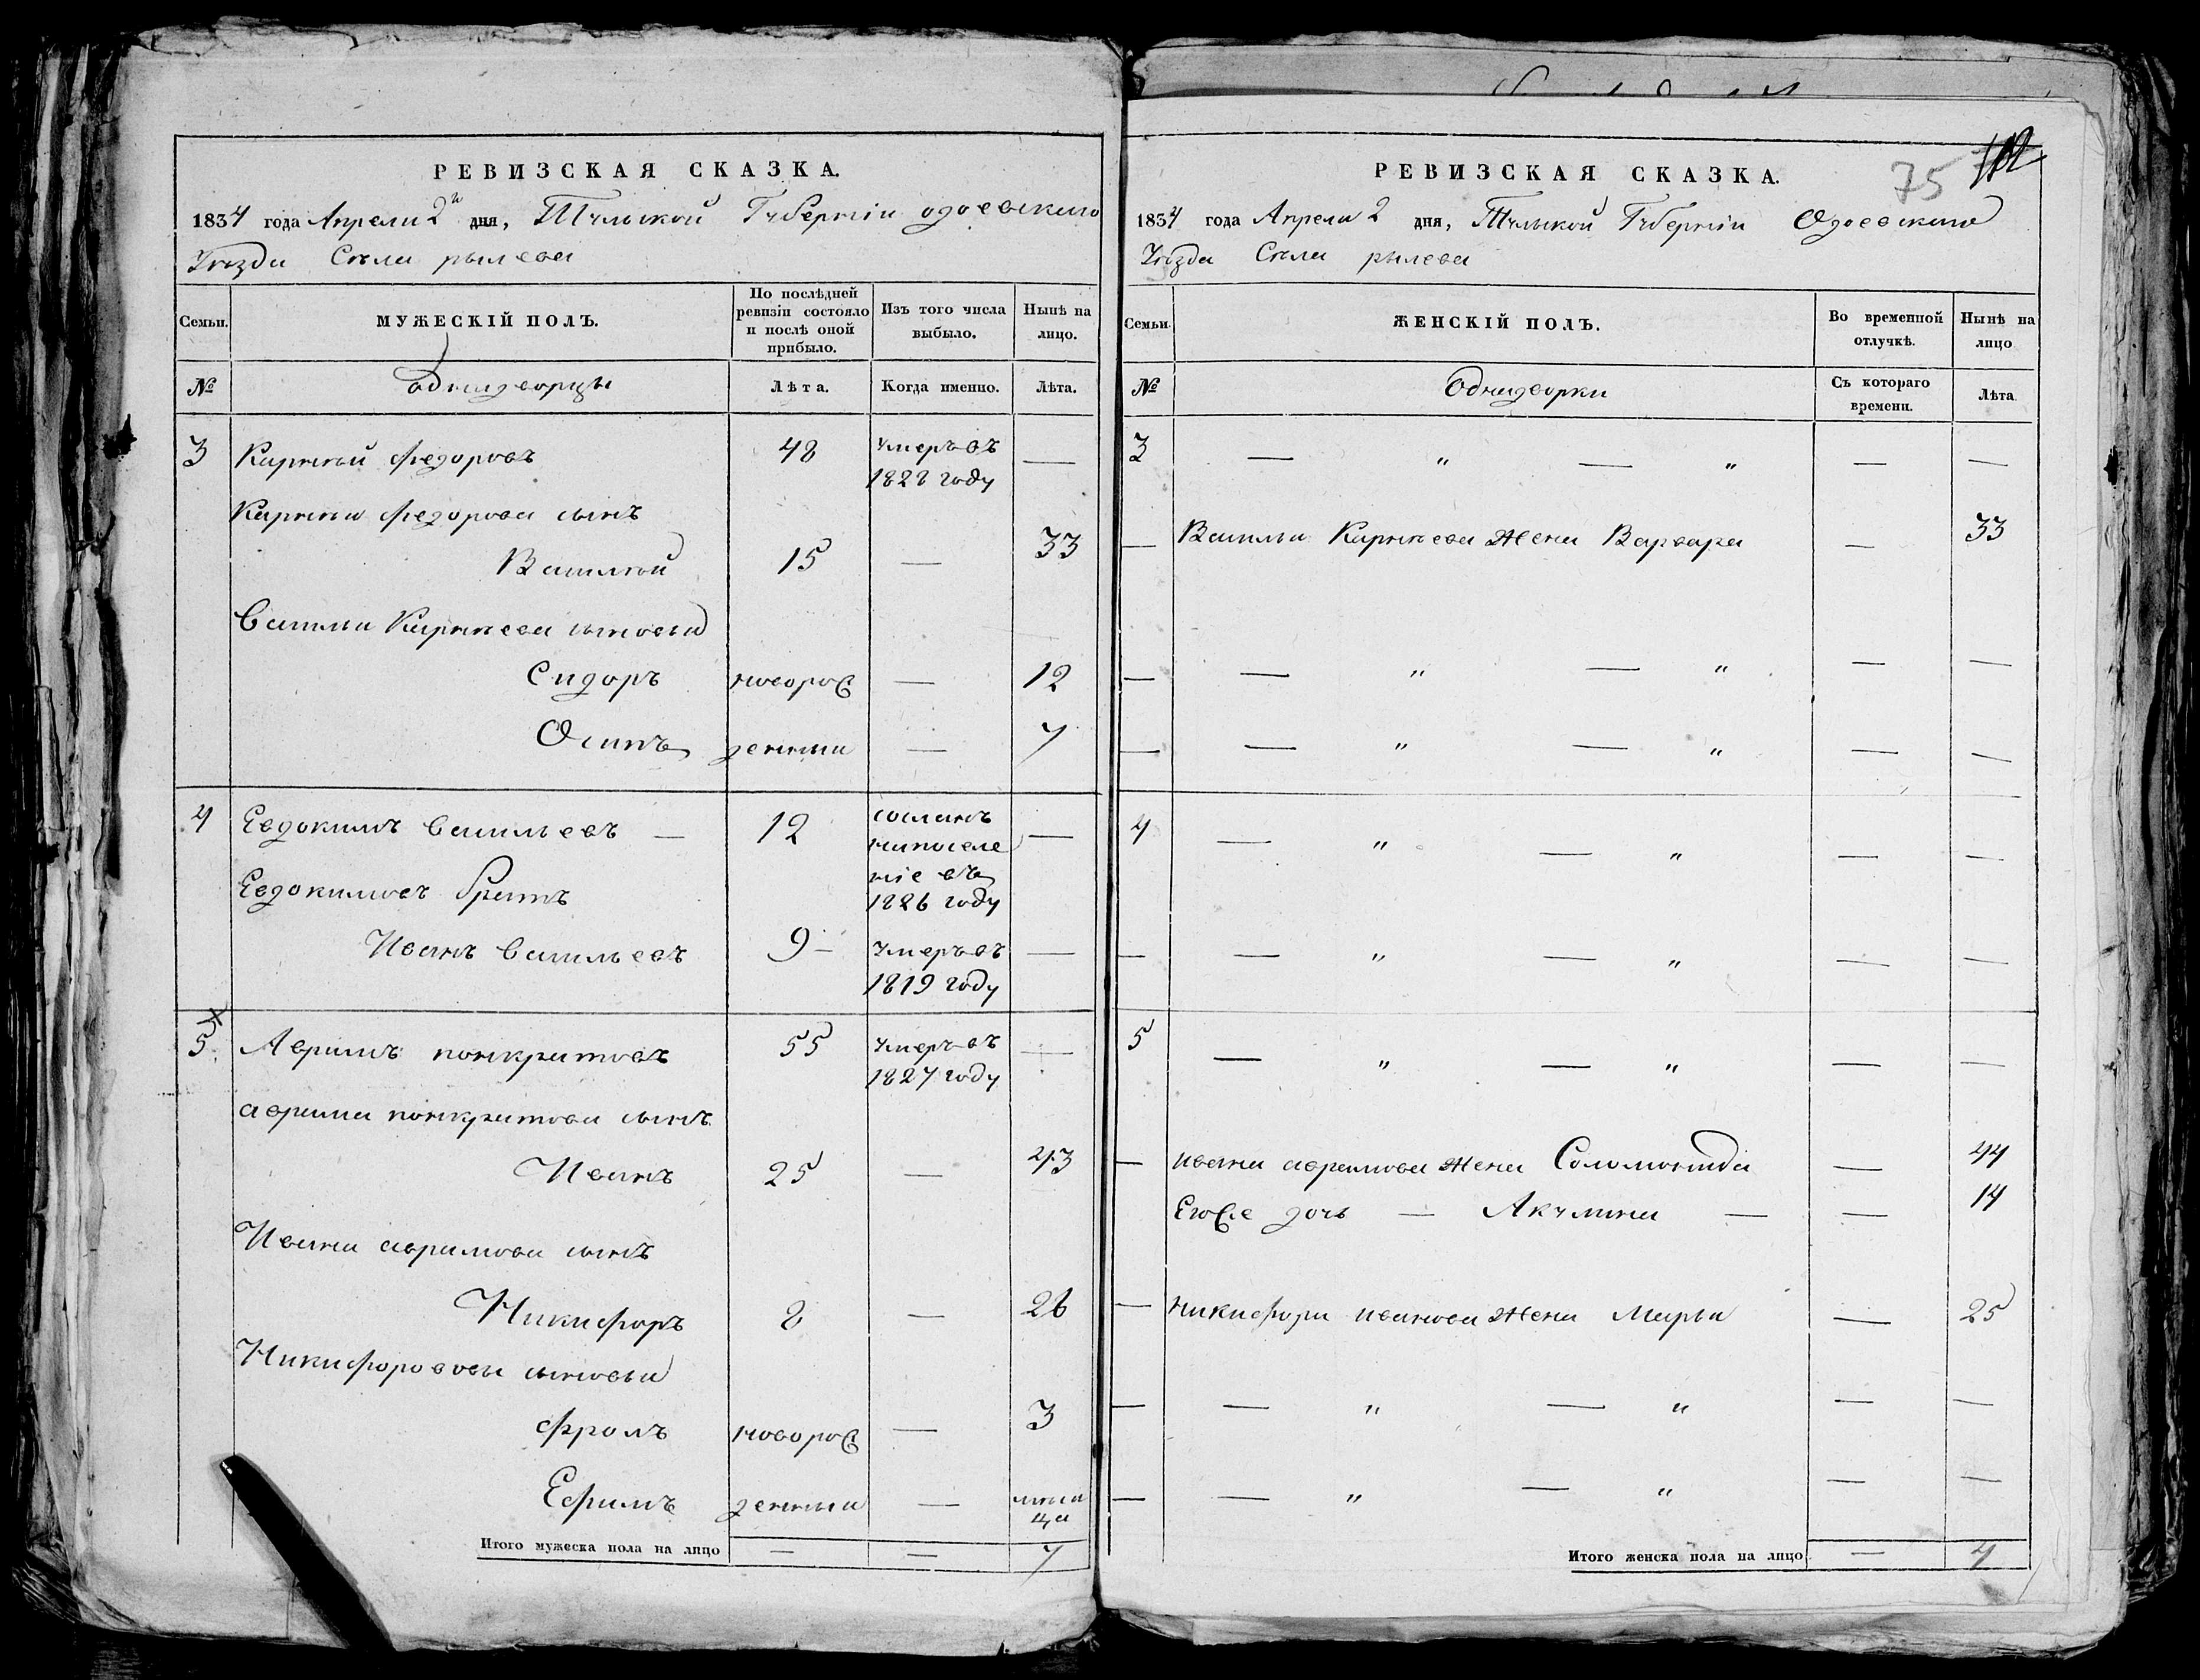 РЕВИЗСКАЯ СКАЗКА.
1834 года Апреля 2го дня, Тульской Губернiи одоевскаго
Уѣзда Села рылева
Семьи.
МУЖЕСКІЙ ПОЛЪ.
По послѣдней ревизіи состояло и послѣ оной прибыло.
Изъ того числа выбыло.
Нынѣ на лицо.
№
однодворцы
Лѣта.
Когда именно.
Лѣта.
3 Карпѣй федоровъ 48 умеръ въ 1828 году —
Карпѣя федорова сынъ
Василѣй 15 — 33
Василья Карпѣева сыновья
Сидоръ новорож — 12
Осипъ денныя — 7
4 Евдокимъ Васильевъ — 12 сосланъ на поселе нiе въ 1826 году —
Евдокимовъ братъ
Иванъ Васильевъ 9 — умеръ въ 1819 году —
5 Аврамъ понкратовъ 55 умеръ въ 1827 году —
аврама понкратова сынъ
Иванъ 25 — 43
Ивана аврамова сынъ
Никифоръ 8 — 26
Никифоровы сыновья
Фролъ новорож — 3
Ефимъ денныя — мѣся ца
Итого мужеска пола на лицо — — 7
75
РЕВИЗСКАЯ СКАЗКА.
1834 года Апреля 2 дня, Тульской Губернiи Одоевскаго
Уѣзда Села рылева
Семьи.
ЖЕНСКІЙ ПОЛЪ.
Во временной отлучкѣ.
Нынѣ на лицо
№
Однодворки
Съ котораго времени.
Лѣта
3 — " — " — —
— Василья Карпѣева жена Варвара — 33
— — " — " — —
— — " — " — —
4 — " — " — —
— — " — " — —
5 — " — " — —
— ивана аврамова жена Соломонида — 44
Егоже дочь — Акулина — — 14
— никифора иванова жена Марья — 25
— — " — " — —
— — " — " — —
Итого женска пола на лицо. — 4